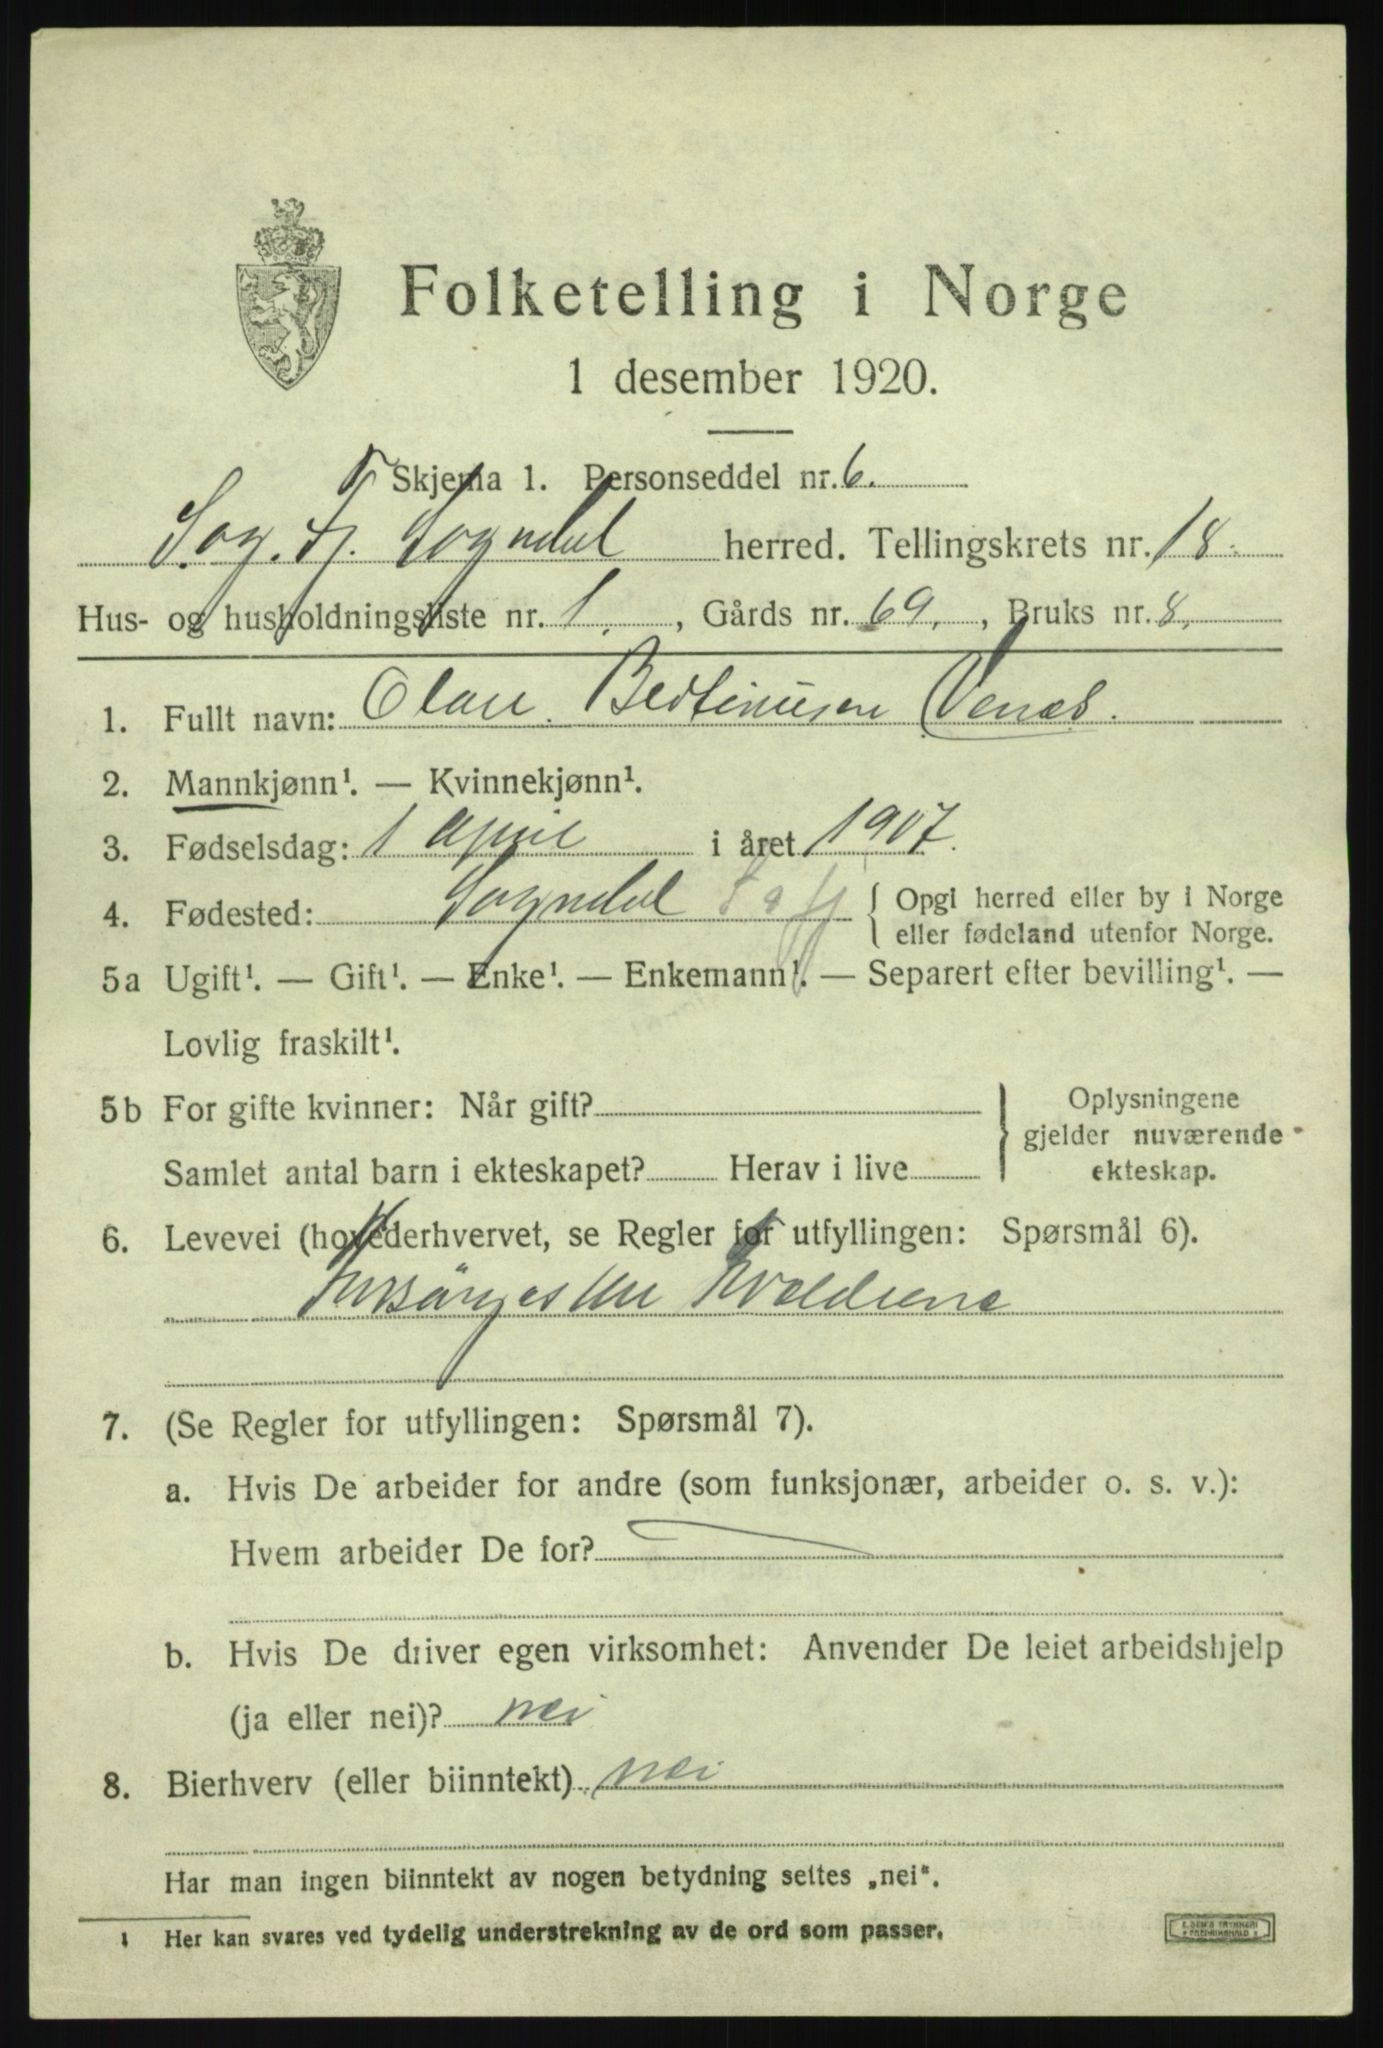 Folketelling i Norge
1 desember 1920.
Skjema 1. Personseddel nr. 6.
Sogn. Fj. Sogndal herred. Tellingskrets nr. 18.
Hus- og husholdningsliste nr. 1. , Gårds nr. 69. , Bruks nr. 8.
1. Fullt navn: Olav. Bertinusen Venæs.
2. Mannkjønn¹. — Kvinnekjønn¹.
3. Fødselsdag: 1 April i året 1907.
4. Fødested: Sogndal S og fj { Opgi herred eller by i Norge
eller fødeland utenfor Norge.
5a Ugift¹. — Gift¹. — Enke¹. — Enkemann¹. — Separert efter bevilling¹. —
Lovlig fraskilt¹.
5b For gifte kvinner: Når gift? } Oplysningene
gjelder nuværende
Samlet antal barn i ekteskapet? Herav i live ekteskap.
6. Levevei (hovederhvervet, se Regler for utfyllingen: Spørsmål 6).
Forsörges av Foreldrene
7. (Se Regler for utfyllingen: Spørsmål 7).
a. Hvis De arbeider for andre (som funksjonær, arbeider o. s. v.):
Hvem arbeider De for?
b. Hvis De driver egen virksomhet: Anvender De leiet arbeidshjelp
(ja eller nei)? nei
8. Bierhverv (eller biinntekt) nei
Har man ingen biinntekt av nogen betydning settes „nei“.
1 Her kan svares ved tydelig understrekning av de ord som passer.